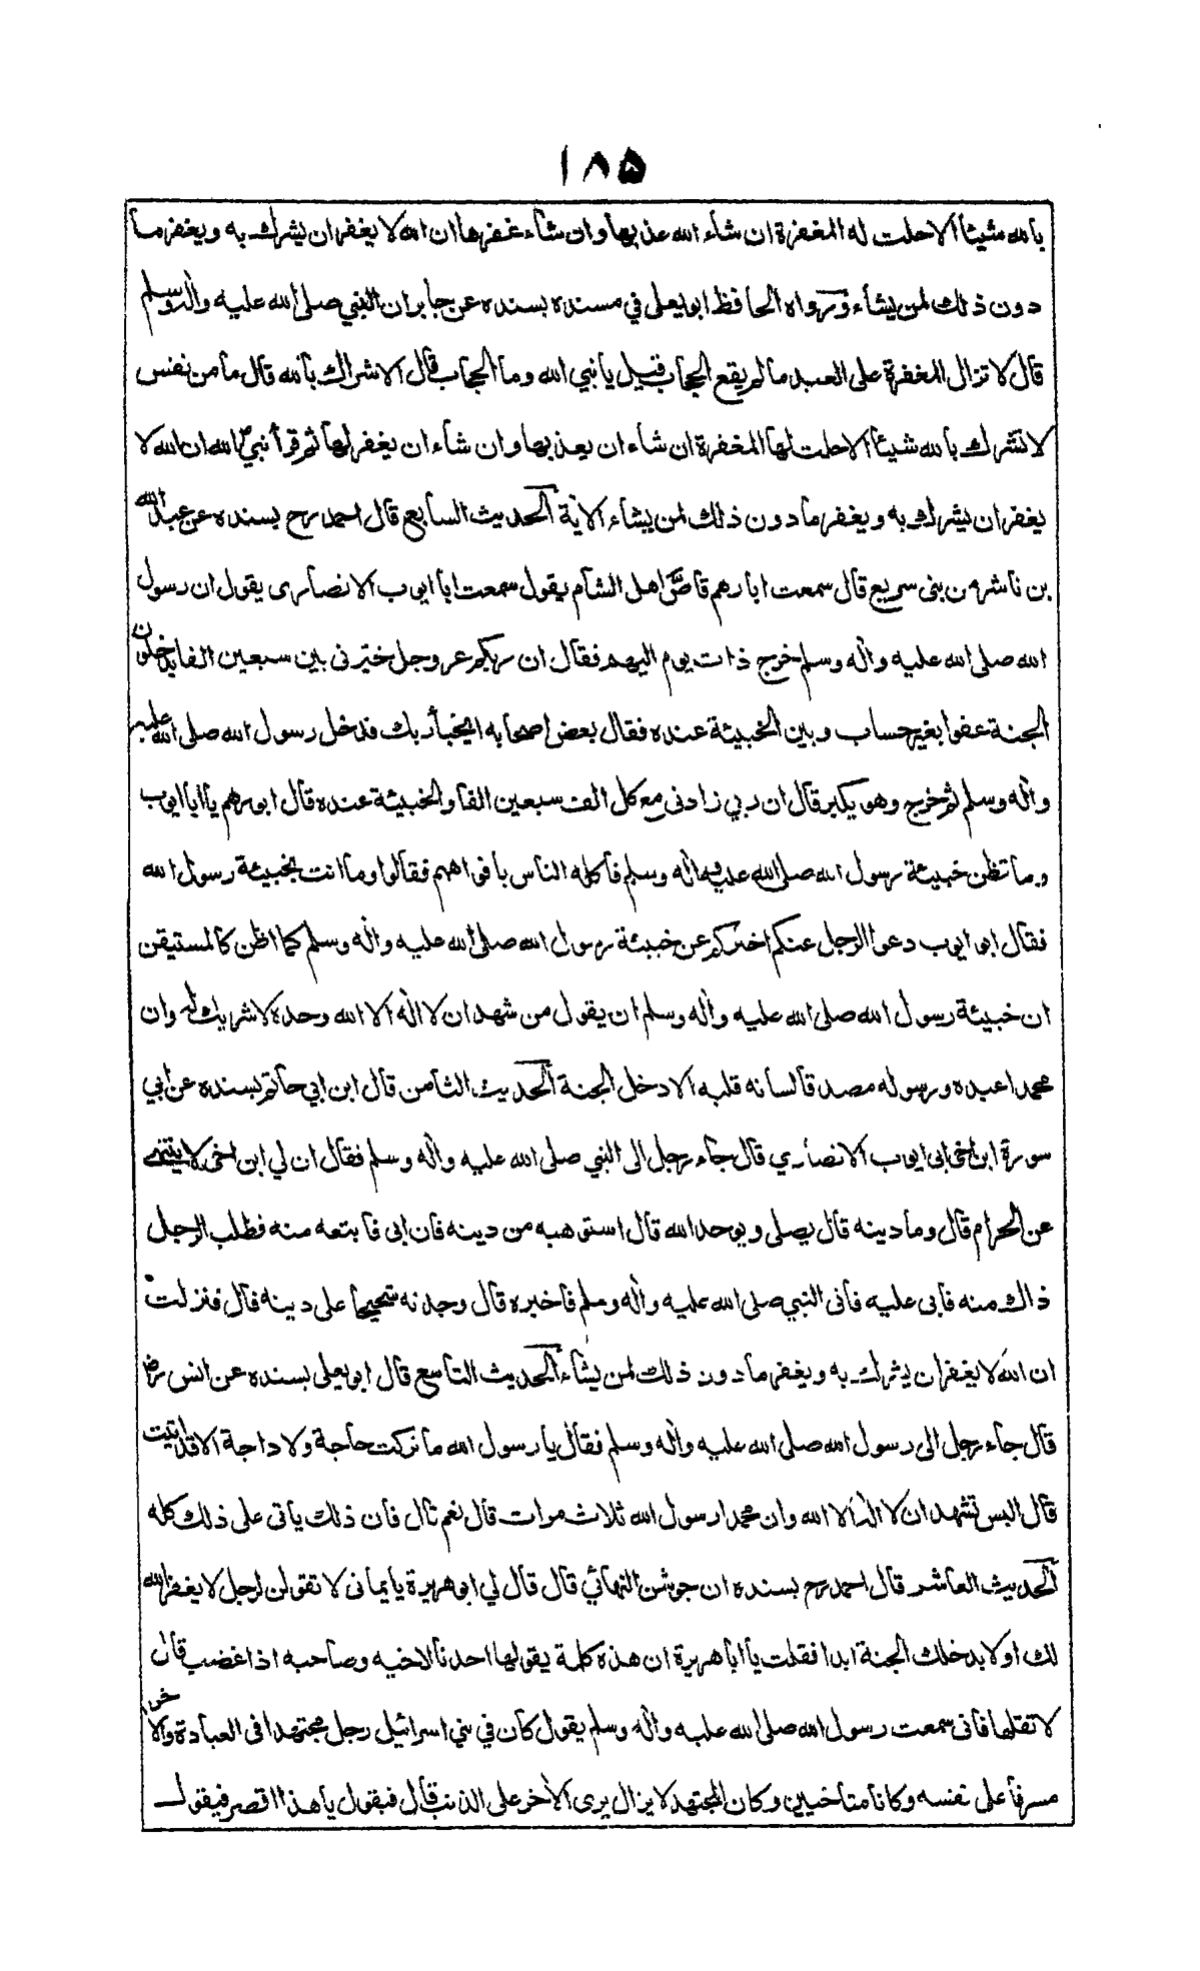 ١٨٥
بالله شيئا الا حلت له المغفرة ان شاء الله عذبها وان شاء غفرها ان الله لا يغفر ان يشرك به ويغفر ما
دون ذلك لمن يشاء ورواه الحافظ ابو يعلى في مسنده بسنده عن جابر ان النبي صلى الله عليه واله وسلم
قال لا تزال المغفرة على العبد ما لم يقع الحجاب قيل يا نبي الله وما الحجاب قال الاشراك بالله قال ما من نفس
لا تشرك بالله شيئا الا حلت لها المغفرة ان شاء ان يعذبها وان شاء ان يغفر لها ثم قرأ نبي الله ان الله لا
يغفر ان يشرك به ويغفر ما دون ذلك لمن يشاء الاية الحديث السابع قال احمد رح بسنده عن عبد الله
بن ناشر من بنى سريع قال سمعت ابا رهم قاصّ اهل الشام يقول سمعت ابا ايوب الانصارى يقول ان رسول
الله صلى الله عليه واله وسلم خرج ذات يوم اليهم فقال ان ربكم عز وجل خيرنى بين سبعين الفا يدخلون
الجنة عفوا بغير حساب وبين الخبيئة عنده فقال بعض اصحابه ايخبأ ربك فدخل رسول الله صلى الله عليه
واله وسلم ثم خرج وهو يكبر قال ان ربي زادنى مع كل الف سبعين الفا والخبيئة عنده قال ابو رهم يا ابا ايوب
وما تظن خبيئة رسول الله صلى الله عليه واله وسلم فاكله الناس بافواههم فقالوا وما انت بخبيئة رسول الله
فقال ابو ايوب دعوا الرجل عنكم اخبركم عن خبيئة رسول الله صلى الله عليه واله وسلم كما اظن كالمستيقن
ان خبيئة رسول الله صلى الله عليه واله وسلم ان يقول من شهد ان لا اله الا الله وحده لا شريك له وان
محمدا عبده ورسوله مصدقا لسانه قلبه الا دخل الجنة الحديث الثامن قال ابن ابي حاتم بسنده عن ابي
سورة ابن اخى ابى ايوب الانصاري قال جاء رجل الى النبي صلى الله عليه واله وسلم فقال ان لي ابن اخى لا ينتهى
عن الحرام قال وما دينه قال يصلى ويوحد الله قال استوهبه من دينه فان ابى فابتعه منه فطلب الرجل
ذاك منه فابى عليه فاتى النبي صلى الله عليه واله وسلم فاخبره قال وجدته شحيحا على دينه قال فنزلت
ان الله لا يغفر ان يشرك به ويغفر ما دون ذلك لمن يشاء الحديث التاسع قال ابو يعلى بسنده عن انس رض
قال جاء رجل الى رسول الله صلى الله عليه واله وسلم فقال يا رسول الله ما تركت حاجة ولا داجة الا قد اتيت
قال اليس تشهد ان لا اله الا الله وان محمدا رسول الله ثلاث مرات قال نعم قال فان ذلك ياتى على ذلك كله
الحديث العاشر قال احمد رح بسنده ان جوشن قال قال لي ابو هريرة يا يمانى لا تقولن لرجل لا يغفر الله
لك او لا يدخلك الجنة ابدا فقلت يا ابا هريرة ان هذه كلمة يقولها احدنا لاخيه وصاحبه اذا غضب قال
لا تقلها فانى سمعت رسول الله صلى الله عليه واله وسلم يقول كان في بني اسرائيل رجل مجتهدا فى العبادة والاخر
مسرفا على نفسه وكانا متاخيين وكان المجتهد لا يزال يرى الاخر على الذنب قال فيقول يا هذا اقصر فيقول